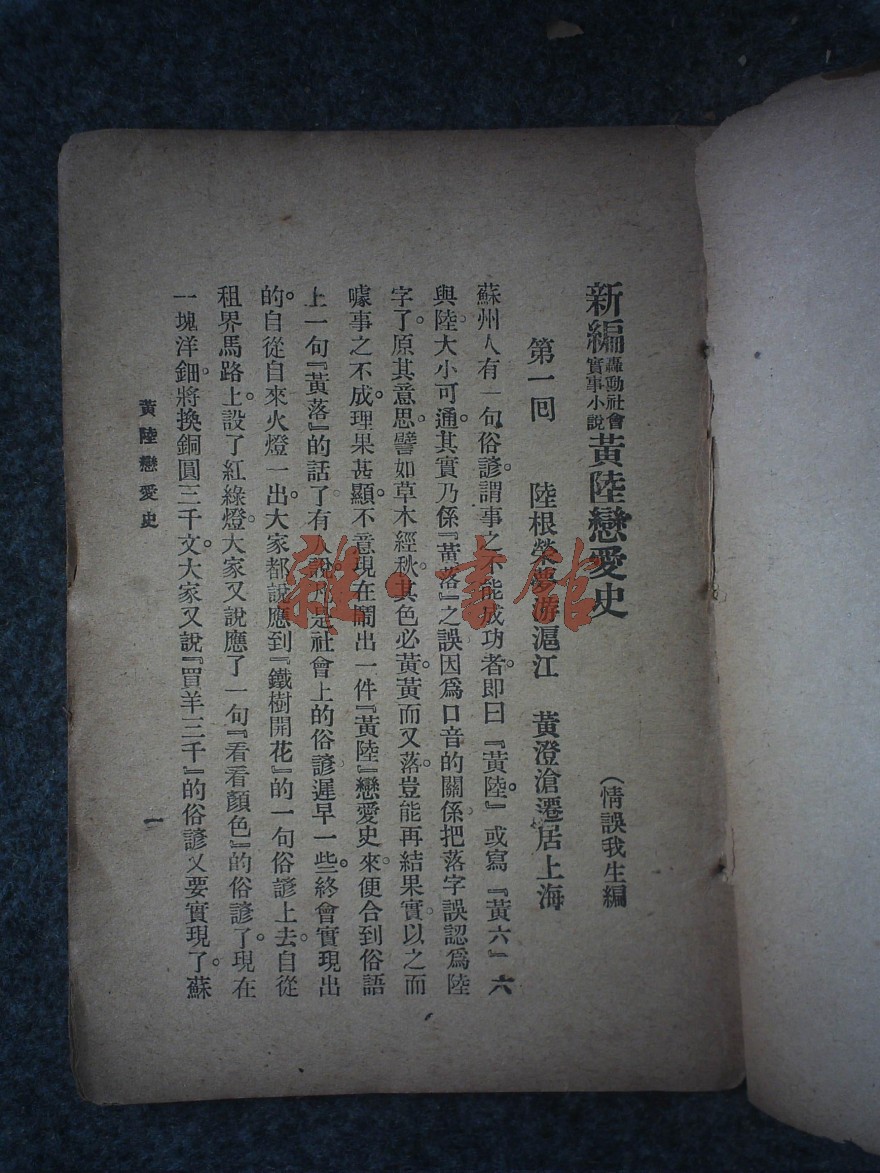 新編轟動社會實事小說黃陸戀愛史
(情誤我生編
第一回 陸根榮夢游滬江 黃澄滄遷居上海
蘇州人有一句俗諺。謂事之不能成功者。即曰『黃陸』。或寫『黃六』六
與陸大小可通。其實乃係『黃落』之誤。因爲口音的關係。把落字誤認爲陸
字了。原其意思。譬如草木經秋。其色必黃。黃而又落。豈能再結果實。以之而
噱事之不成。理果甚顯。不意現在鬧出一件『黃陸』戀愛史來。便合到俗語
上一句『黃落』的話了。有人說。凡是社會上的俗諺。遲早一些。終會實現出
的。自從自來火燈一出。大家都說應到『鐵樹開花』的一句俗諺上去。自從
租界馬路上設了紅綠燈。大家又說應了一句『看看顏色』的俗諺了。現在
一塊洋鈿。將換銅圓三千文。大家又說『買羊三千』的俗諺。又要實現了。蘇
黃陸戀愛史
一
雜·書館